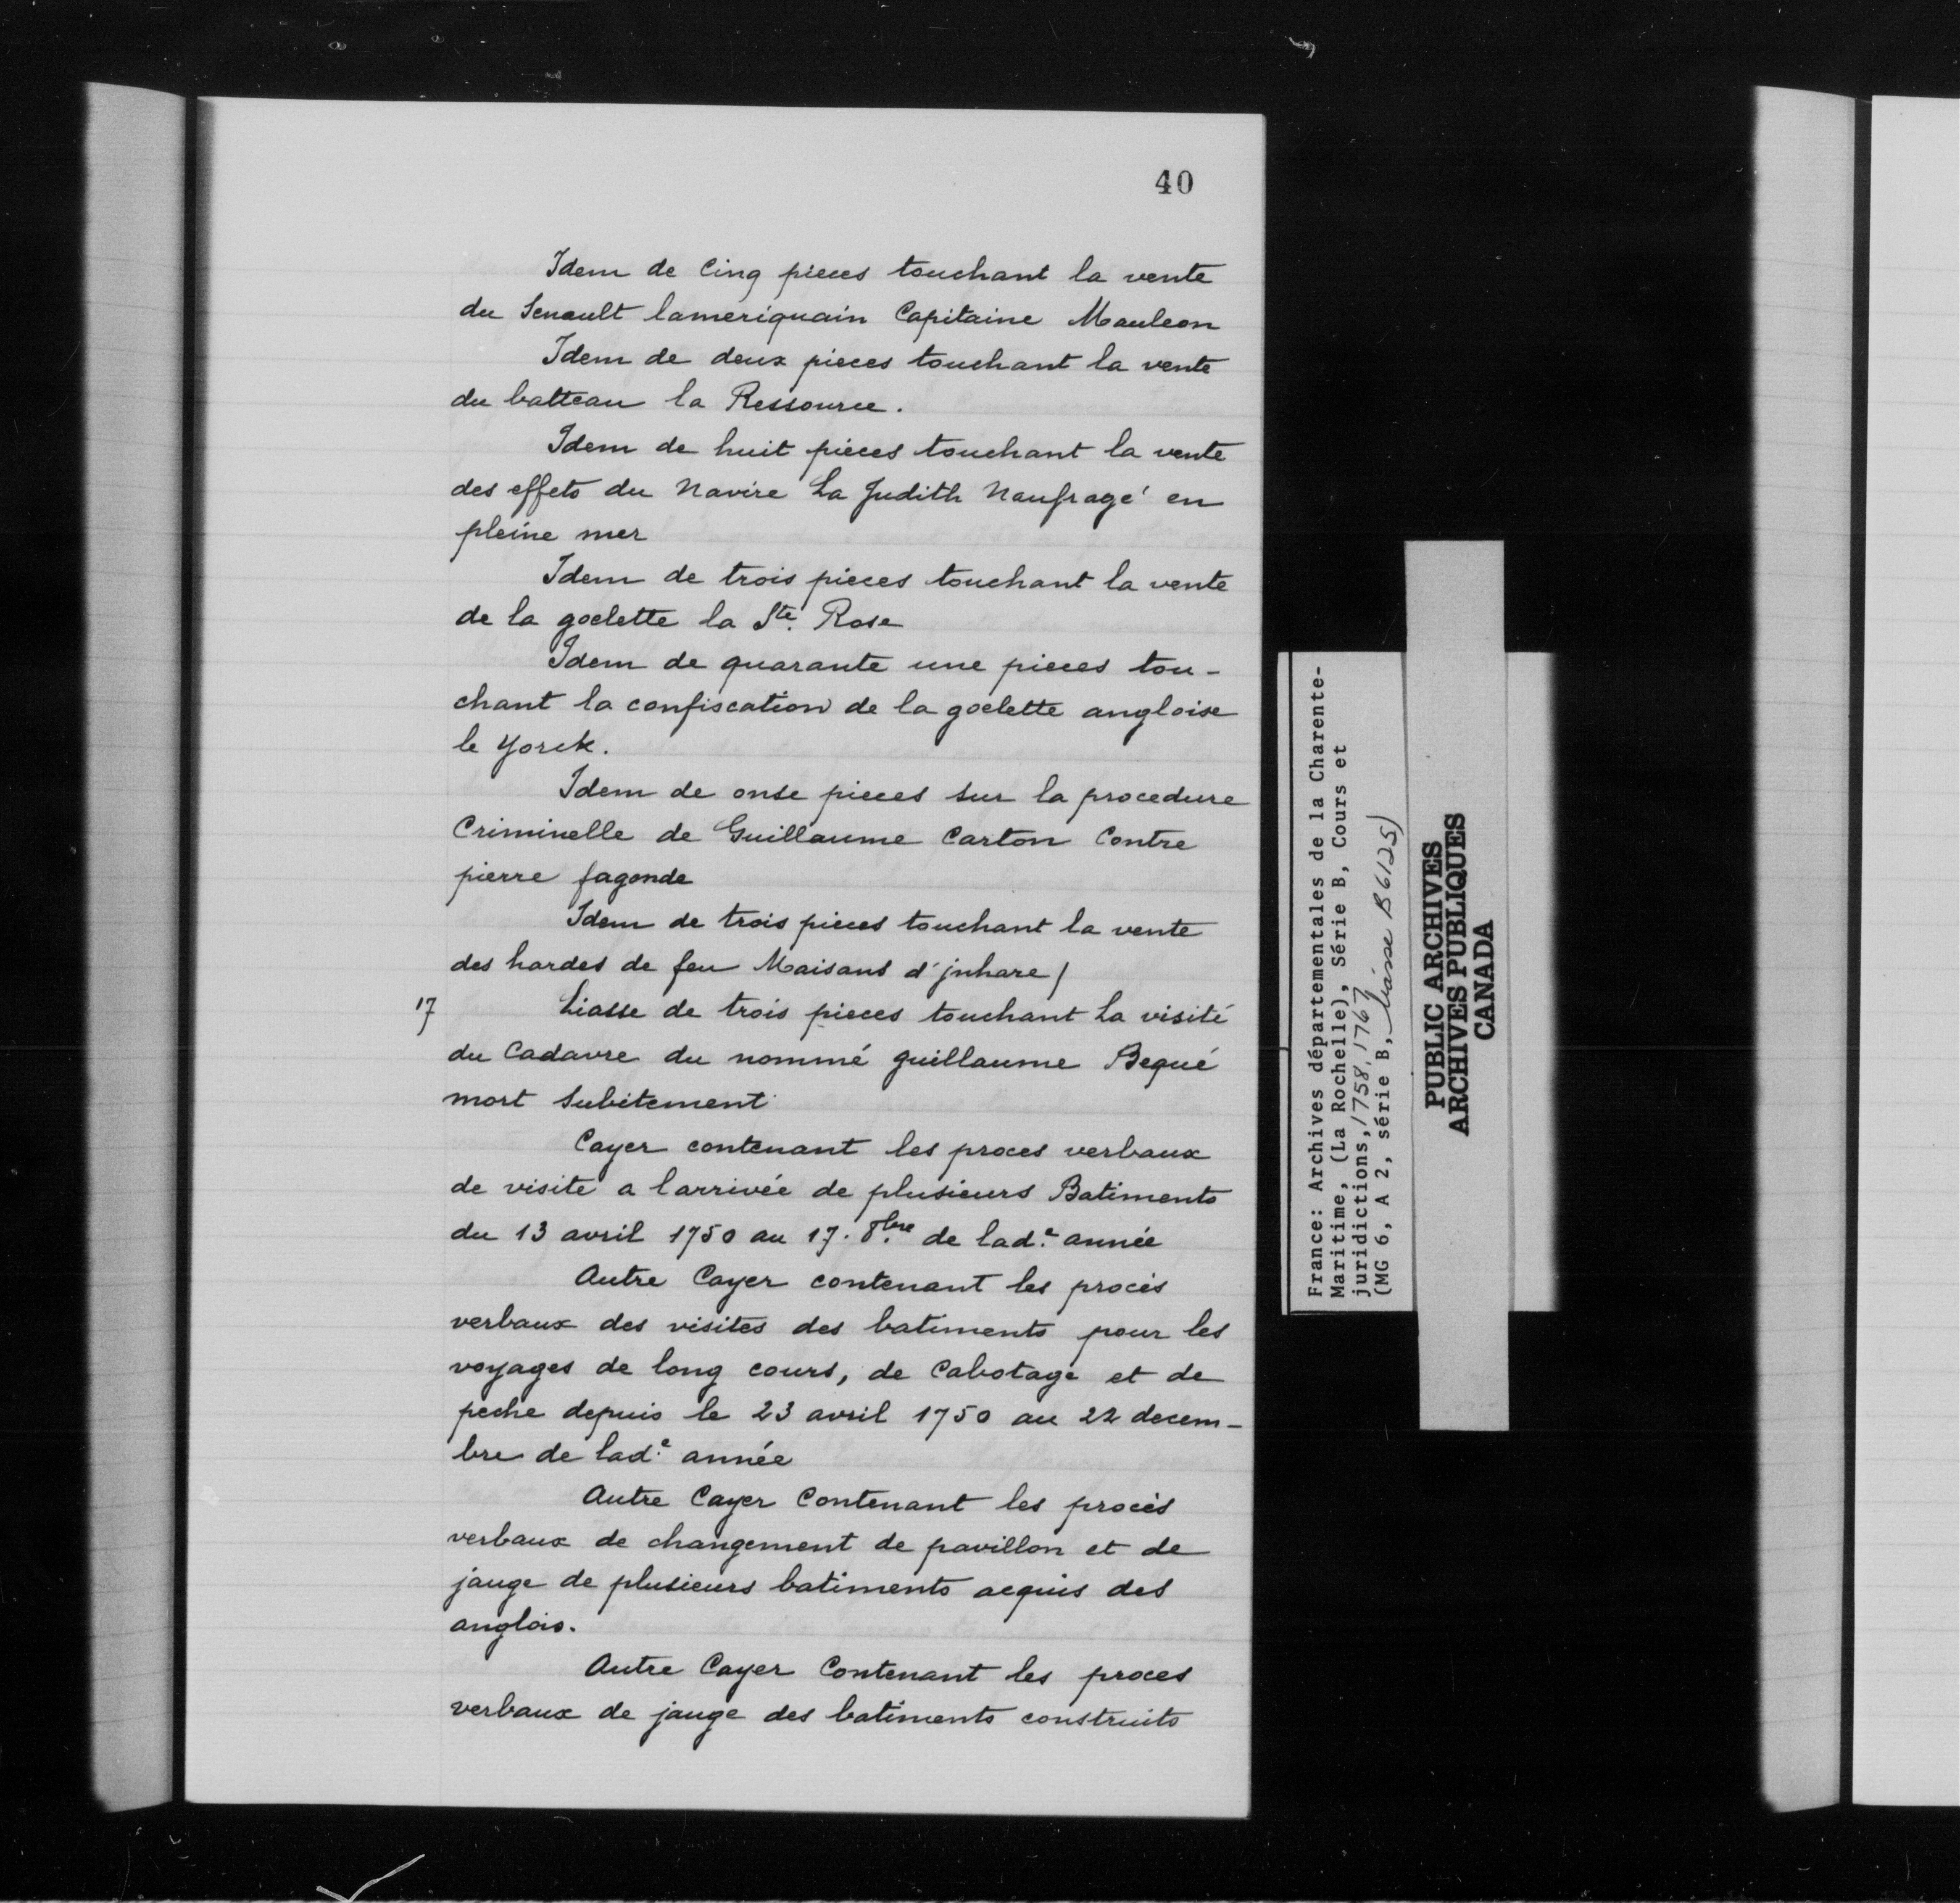 40
Idem de Cinq pieces touchant la vente
du Senault lameriquain Capitaine Mauleon
Idem de deux pieces touchant la vente
du batteau la Ressource.
Idem de huit pièces touchant la vente
des effets du Navire La Judith Naufragé en
pleine mer
Idem de trois pieces touchant la vente
de la goelette la Ste. Rose
Idem de quarante une pieces tou-
chant la confiscation de la goelette angloise
le Yorck.
Idem de onse pieces sur la procedure
Criminelle de Guillaume Carton Contre
pierre fagonde
Idem de trois pieces touchant la vente
des hardes de feu Maisans d'jnhare /
17 Liasse de trois pieces touchant La visité
du Cadavre du nommé guillaume Bequé
mort Subitement
Cayer contenant les proces verbaux
de visite a larrivée de plusieurs Batiments
du 13 avril 1750 au 17. 8bre de lad.e année
Autre Cayer contenant les procès
verbaux des visites des batiments pour les
voyages de long cours, de Cabotage et de
peche depuis le 23 avril 1750 au 22 decem-
bre de lad.e année
Autre Cayer Contenant les procès
verbaux de changement de pavillon et de
jauge de plusieurs batiments acquis des
anglois.
Autre Cayer Contenant les proces
verbaux de jauge des batiments construits
France: Archives départementales de la Charente-
Maritime, (La Rochelle), Série B, Cours et
juridictions, 1758, 1767
(MG 6, A 2, série B, liasse B6125)
PUBLIC ARCHIVES
ARCHIVES PUBLIQUES
CANADA